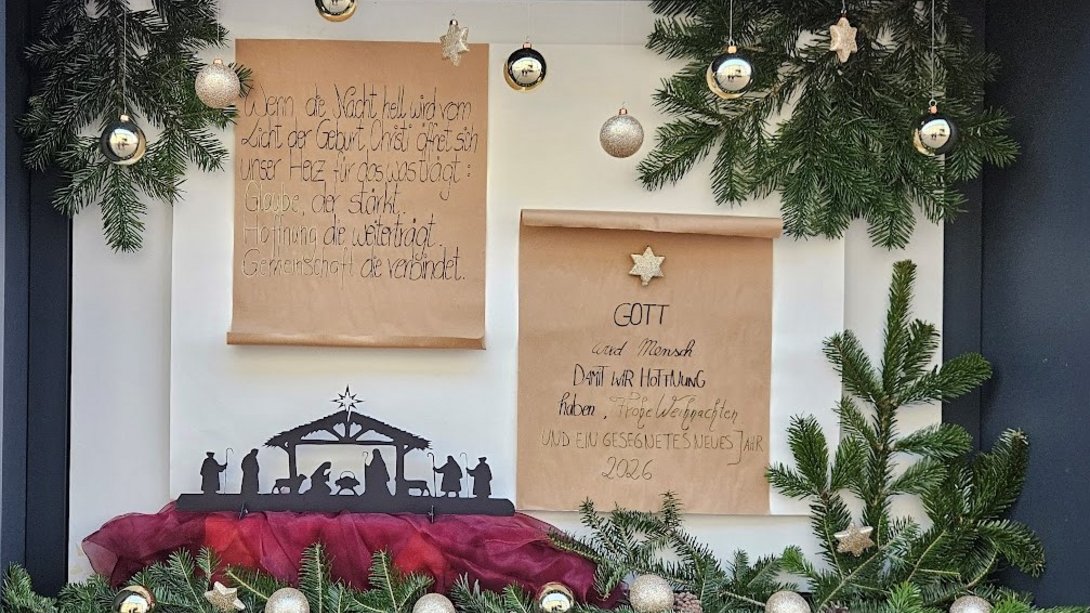 Wenn die Nacht hell wird vom
Licht der Geburt Christi öffnet sich
unser Herz für das was trägt:
Glaube, der stärkt.
Hoffnung die weiterträgt.
Gemeinschaft die verbindet.
GOTT
wird Mensch
DAMIT WIR HOFFNUNG
haben, Frohe Weihnachten
UND EIN GESEGNETES NEUES JAHR
2026